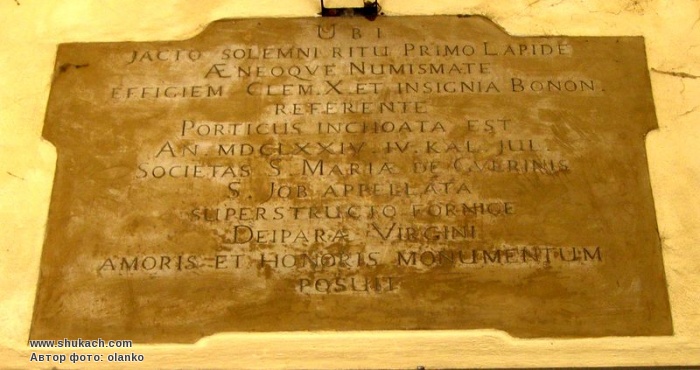 UBI
JACTO SOLEMNI RITU PRIMO LAPIDE
ÆNEOQVE NUMISMATE
EFFIGIEM CLEM. X. ET INSIGNIA BONON.
REFERENTE
PORTICUS INCHOATA EST
AN. MDCLXXIV. IV. KAL. JUL.
SOCIETAS S. MARIÆ DE GVERINIS
S. JOB APPELLATA
SUPERSTRUCTO FORNICE
DEIPARÆ VIRGINI
AMORIS ET HONORIS MONUMENTUM
POSUIT
www.shukach.com
Автор фото: olanko